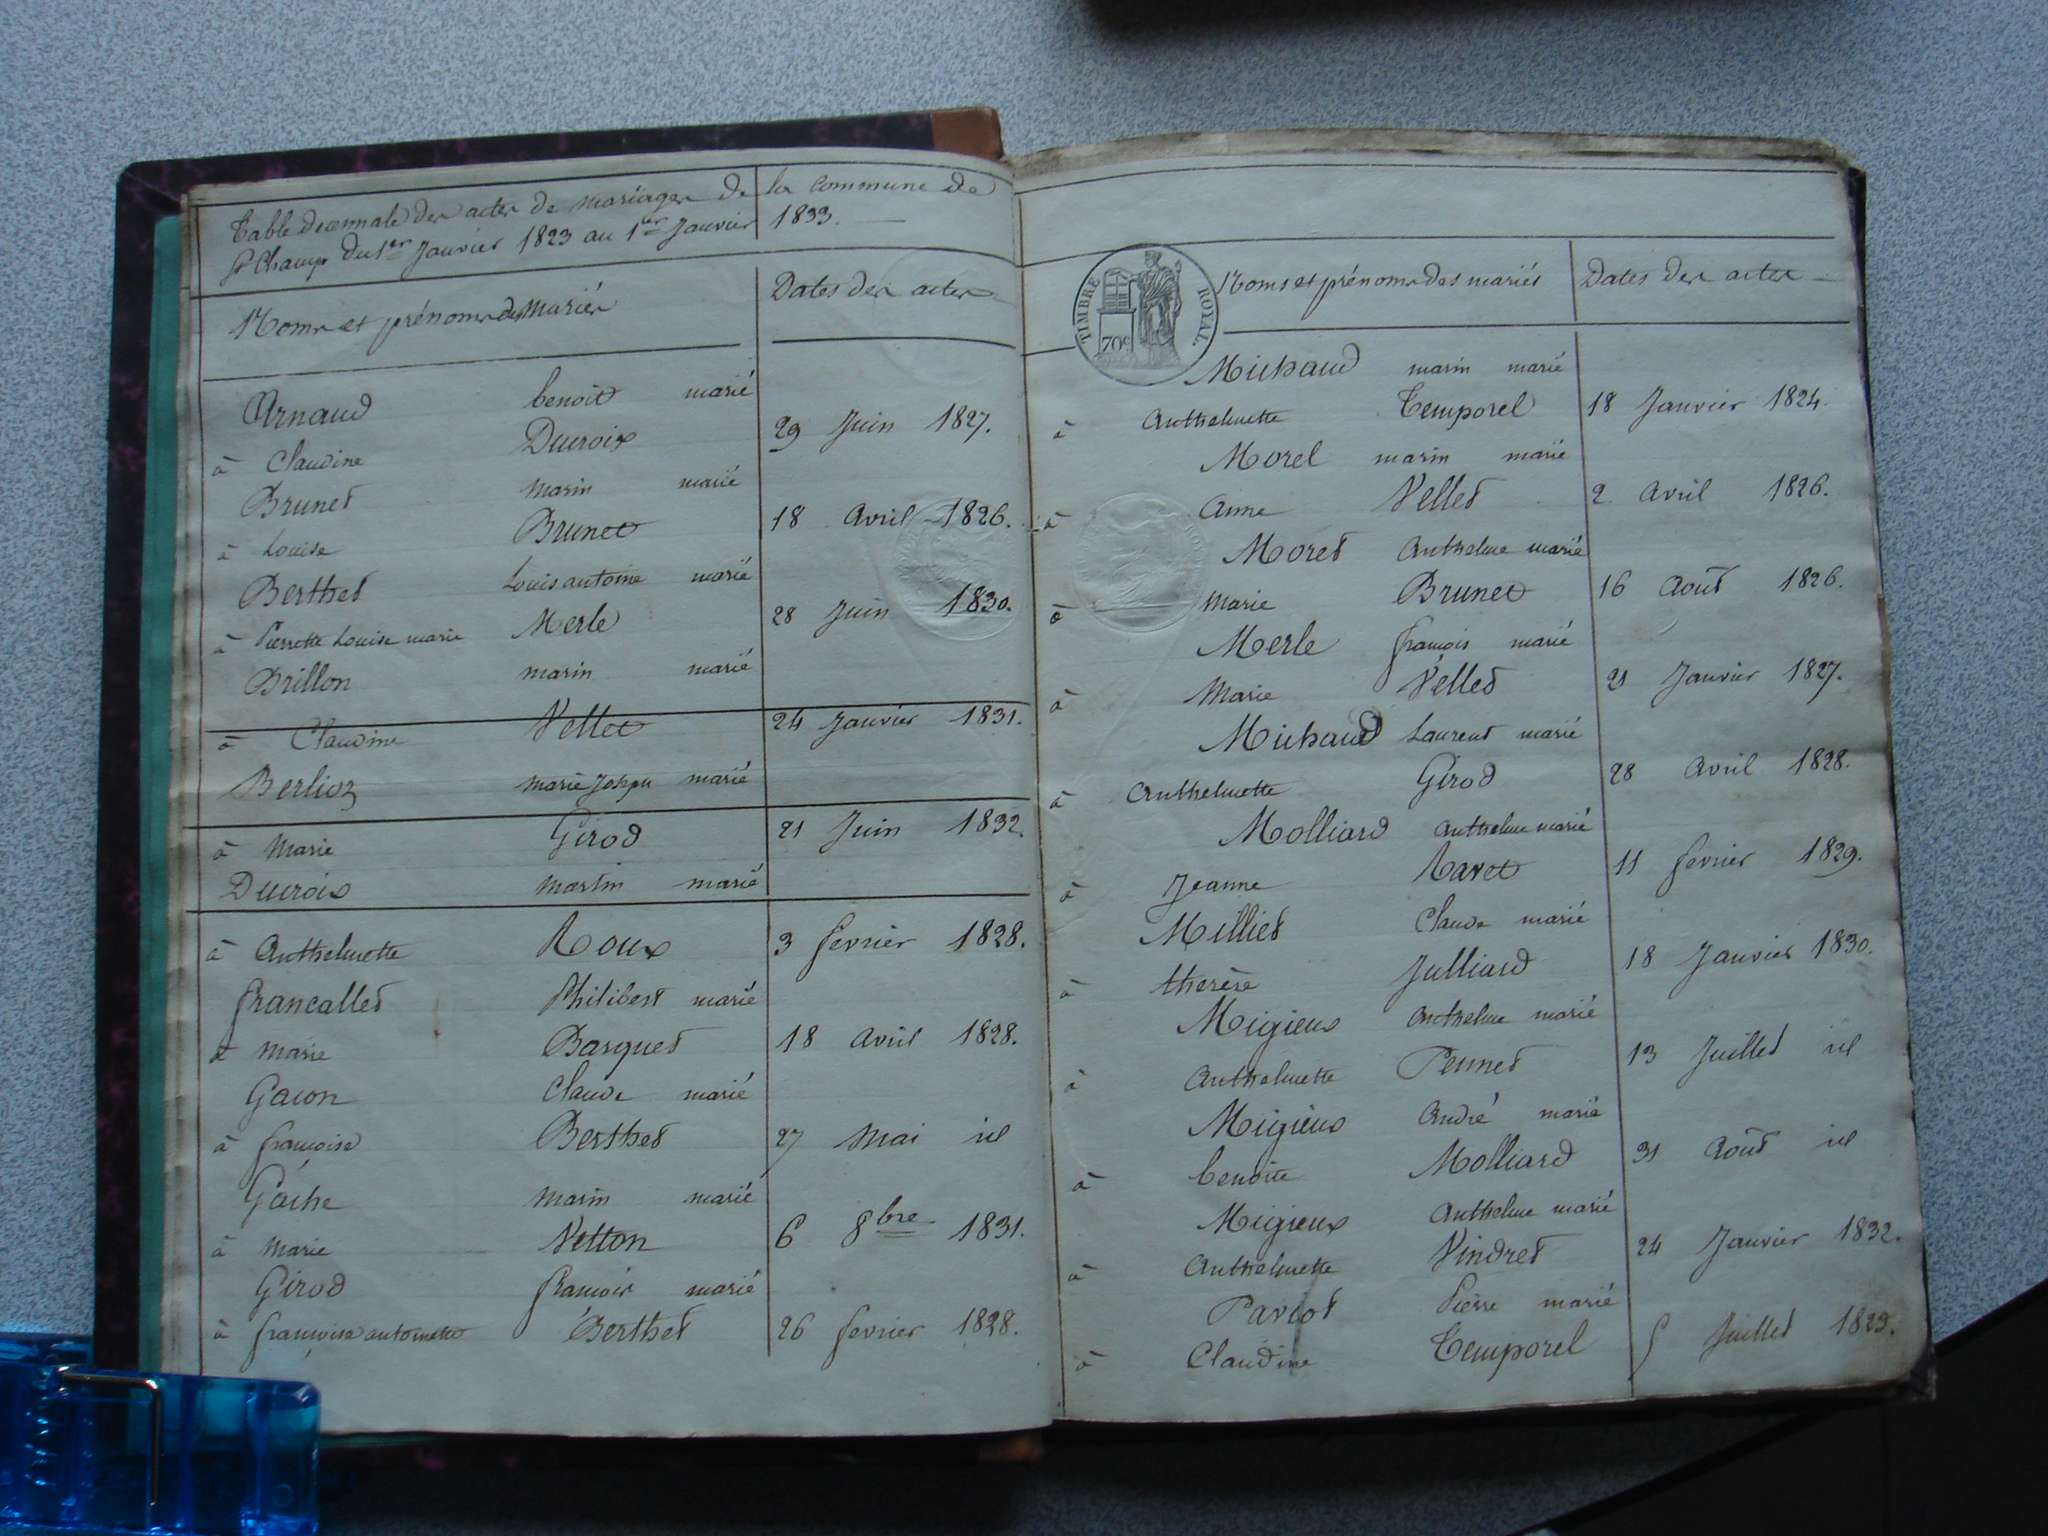 Table décennale des actes de mariages de la commune de
St Champ du 1er Janvier 1823 au 1er Janvier 1833.
Noms et prénoms des Mariés Dates des actes
Arnaud benoit marié
à Claudine Ducroix 29 Juin 1827.
Brunet marin marié
à Louise Brunet 18 avril 1826.
Berthet Louis antoine marié
à Pierrette Louise marie Merle 28 Juin 1830.
Brillon marin marié
à Claudine Vellet 24 Janvier 1831.
Berlioz marie Joseph marié
à Marie Girod 21 Juin 1832.
Ducroix martin marié
à Anthelmette Roux 3 fevrier 1828.
francallet Philibert marié
à Marie Barquet 18 avril 1828.
Gacon Claude marié
à françoise Berthet 27 Mai id
Gache marin marié
à Marie Vetton 6 8bre 1831.
Girod françois marié
à françoise antoinette Berthet 26 fevrier 1828.
TIMBRE ROYAL
70c
Noms et prénoms des mariés Dates des actes
Michaud marin marié
à Anthelmette Temporel 18 Janvier 1824.
Morel marin marié
à Anne Vellet 2 avril 1826.
Moret Anthelme marié
à Marie Brunet 16 août 1826.
Merle françois marié
à Marie Vellet 21 Janvier 1827.
Michaud Laurent marié
à Anthelmette Girod 28 avril 1828.
Molliard Anthelme marié
à Jeanne Ravet 11 fevrier 1829.
Milliet Claude marié
à therèse Julliard 18 Janvier 1830.
Migieux Anthelme marié
à Anthelmette Pennet 13 Juillet id
Migieux André marié
à benoite Molliard 31 Août id
Migieux Anthelme marié
à Anthelmette Vindret 24 Janvier 1832.
Paviot Pierre marié
à Claudine Temporel 5 Juillet 1823.